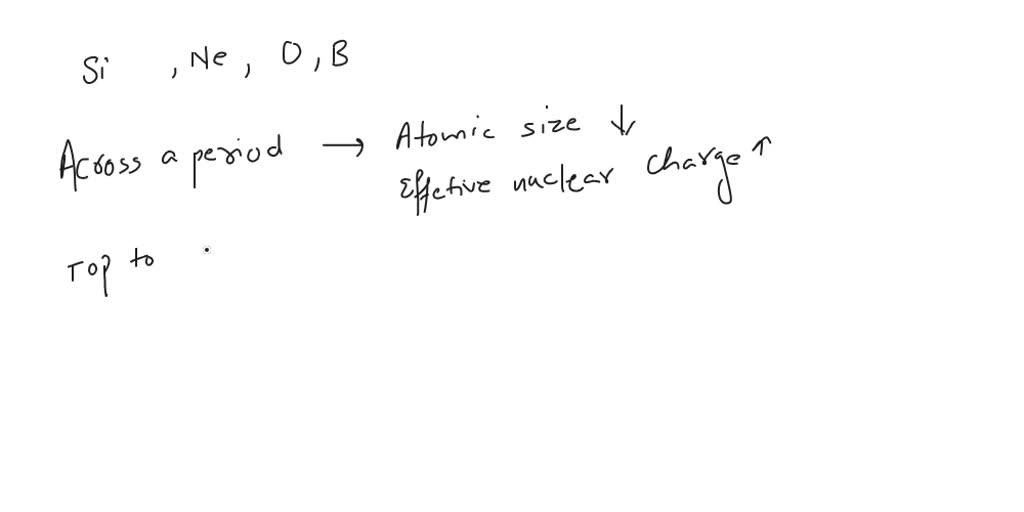 Si , Ne , O , B
Across a period → Atomic size ↓
Effetive nuclear charge ↑
Top to